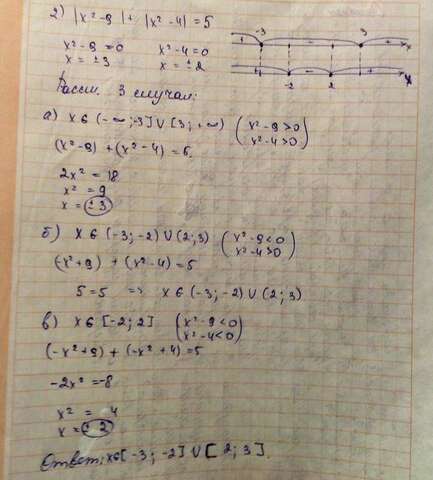 2) |x²-9| + |x²-4| = 5
x²-9=0   x²-4=0
x = ±3   x = ±2
-3   3
+   -   +   x
+   -   +   x
-2   2
Рассм. 3 случая:
а) x ∈ (-∞;-3] ∪ [3; +∞)   (x²-9>0
x²-4>0)
(x²-9) + (x²-4) = 5.
2x² = 18
x² = 9
x = ±3
б) x ∈ (-3; -2) ∪ (2; 3)   (x²-9<0
x²-4>0)
(-x²+9) + (x²-4) = 5
5=5 ⇒ x ∈ (-3; -2) ∪ (2; 3)
в) x ∈ [-2; 2]   (x²-9<0
x²-4<0)
(-x²+9) + (-x²+4) = 5
-2x² = -8
x² = 4
x = ±2
Ответ: x∈[-3; -2] ∪ [2; 3].